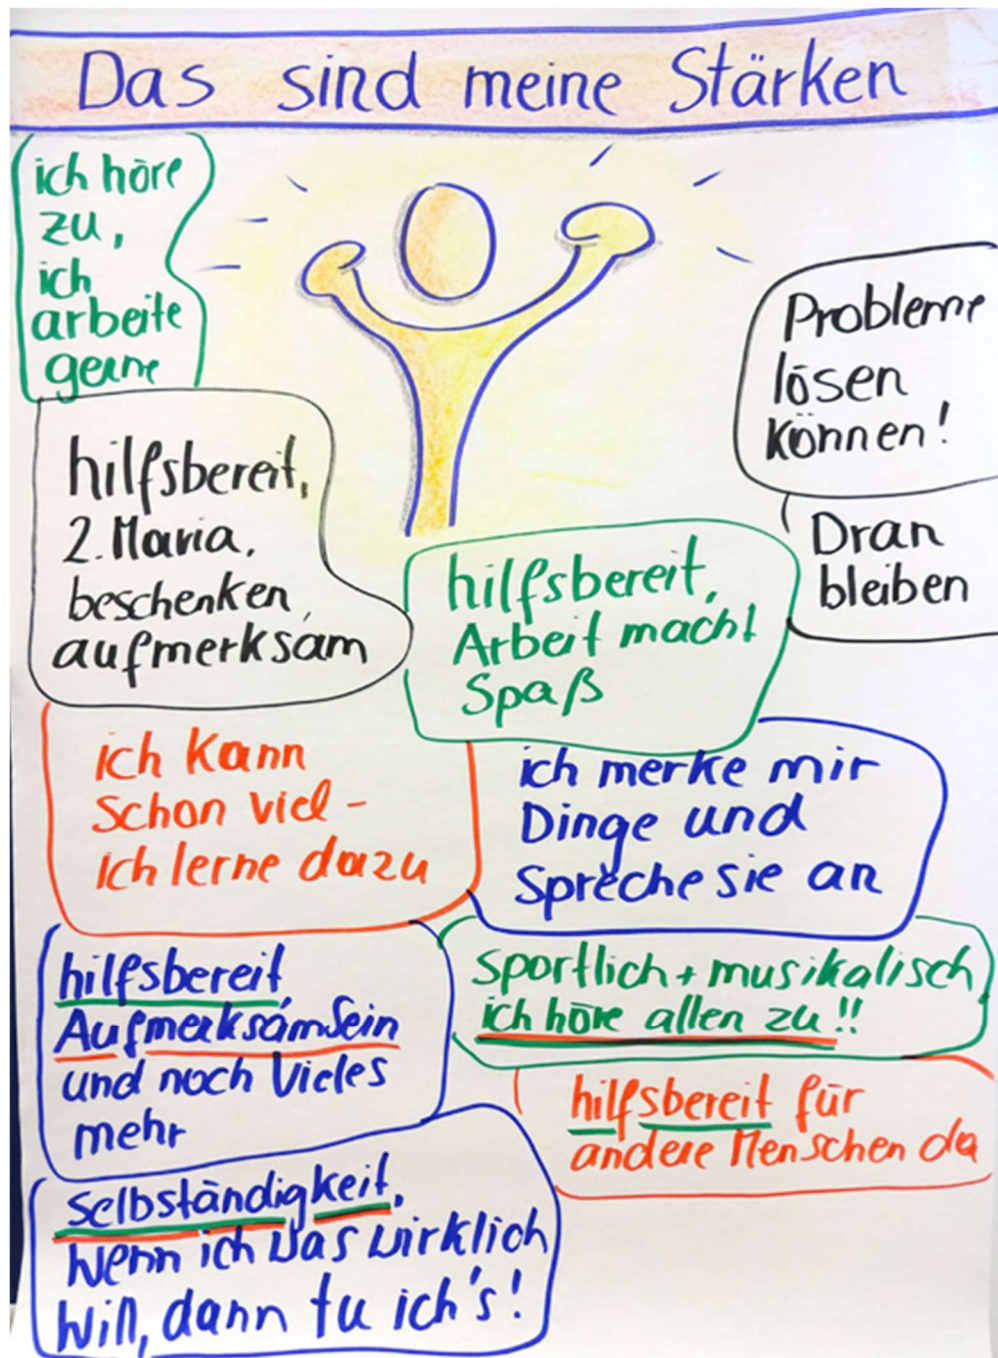 Das sind meine Stärken
ich höre
zu,
ich
arbeite
gerne
Probleme
lösen
können!
hilfsbereit,
2. Maria,
beschenken,
aufmerksam
Dran
bleiben
hilfsbereit,
Arbeit macht
Spaß
ich kann
schon viel -
Ich lerne dazu
ich merke mir
Dinge und
spreche sie an
hilfsbereit
Aufmerksam sein
und noch Vieles
mehr
sportlich + musikalisch
ich höre allen zu!!
hilfsbereit für
andere Menschen da
Selbständigkeit,
Wenn ich was wirklich
will, dann tu ich's!